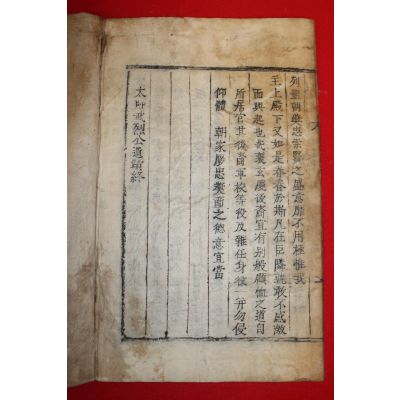 列聖朝奬忠崇賢之盛意靡不用極惟我
主上殿下又如是眷眷於斯凡在臣隣孰敢不感激
而興起也哉裴玄慶後裔宜有別般顧恤之道自
所居官其後裔軍校等役及雜任身役一幷勿侵
仰體 朝家勝忠褒節之德意宜當
太師武烈公遺蹟終